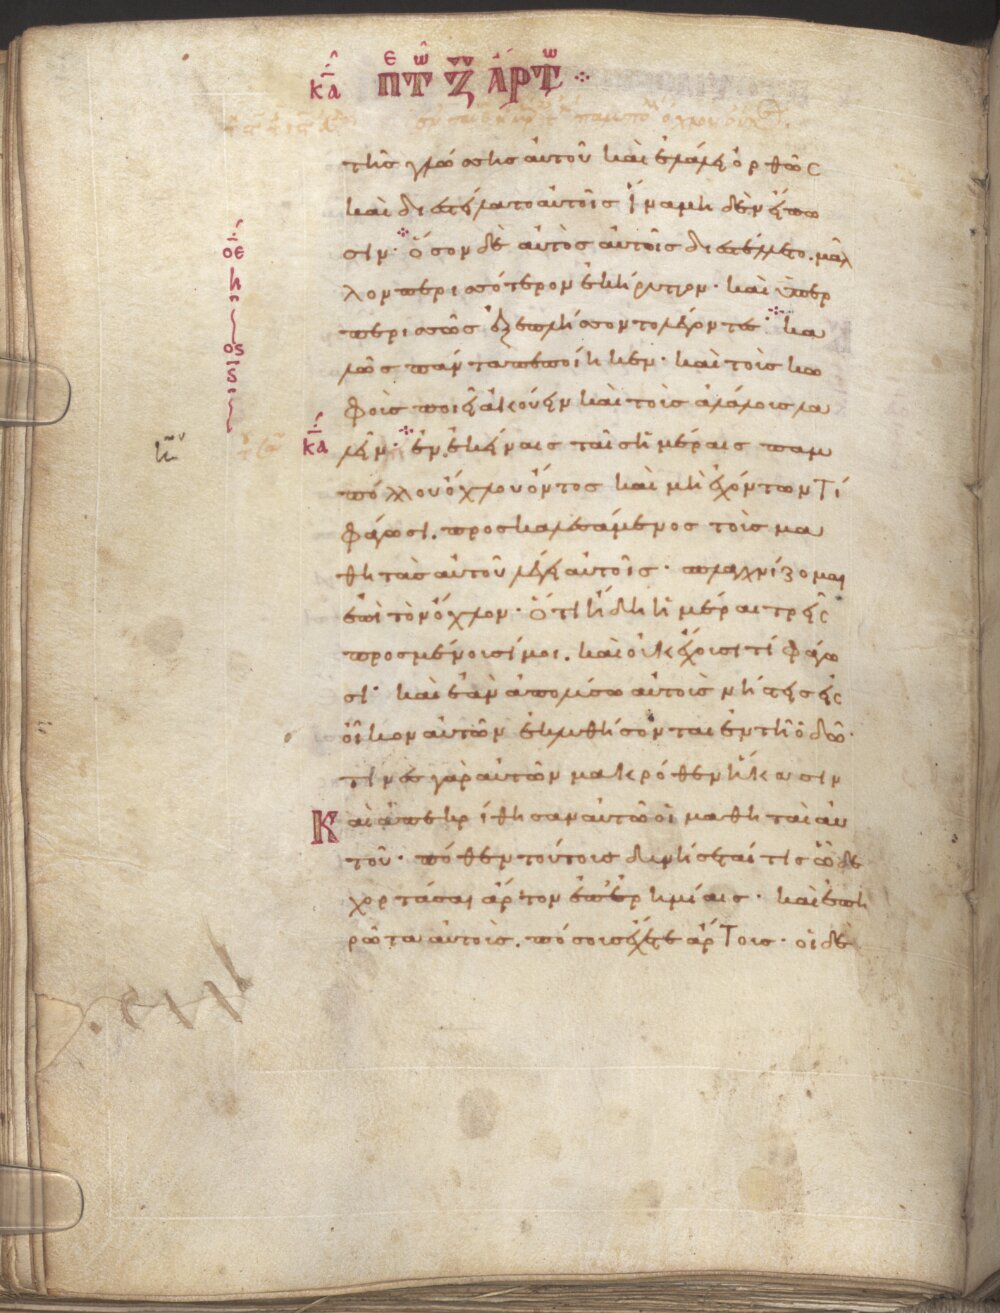 κα περὶ τῶν ζ ἄρτων
τῆς γλώσσης αὐτοῦ καὶ ἐλάλει ὀρθῶς
καὶ διεστείλατο αὐτοῖς ἵνα μηδενὶ εἴπω
σιν· ὅσον δὲ αὐτὸς αὐτοῖς διεστέλλετο. μᾶλ
λον περισσότερον ἐκήρυττον· καὶ ὑπερ
περισσῶς ἐξεπλήσσοντο λέγοντες· κα
λῶς πάντα πεποίηκεν· καὶ τοὺς κω
φοὺς ποιεῖ ἀκούειν καὶ τοὺς ἀλάλους λα
λεῖν· ἐν ἐκείναις ταῖς ἡμέραις παμ
πόλλου ὄχλου ὄντος καὶ μὴ ἐχόντων τί
φάγωσι. προσκαλεσάμενος τοὺς μα
θητὰς αὐτοῦ λέγει αὐτοῖς· σπλαγχνίζομαι
ἐπὶ τὸν ὄχλον· ὅτι ἤδη ἡμέραι τρεῖς
προσμένουσί μοι. καὶ οὐκ ἔχουσι τί φάγω
σι· καὶ ἐὰν ἀπολύσω αὐτοὺς νήστεις εἰς
οἶκον αὐτῶν ἐκλυθήσονται ἐν τῇ ὁδῷ·
τινὲς γὰρ αὐτῶν μακρόθεν ἥκασιν
Καὶ ἀπεκρίθησαν αὐτῷ οἱ μαθηταὶ αὐ
τοῦ· πόθεν τούτους δυνήσεταί τις ὧδε
χορτάσαι ἄρτον ἐπ' ἐρημίαις· καὶ ἐπη
ρώτα αὐτούς. πόσους ἔχετε ἄρτους· οἱ δὲ
οε
η
ος
ς
κα